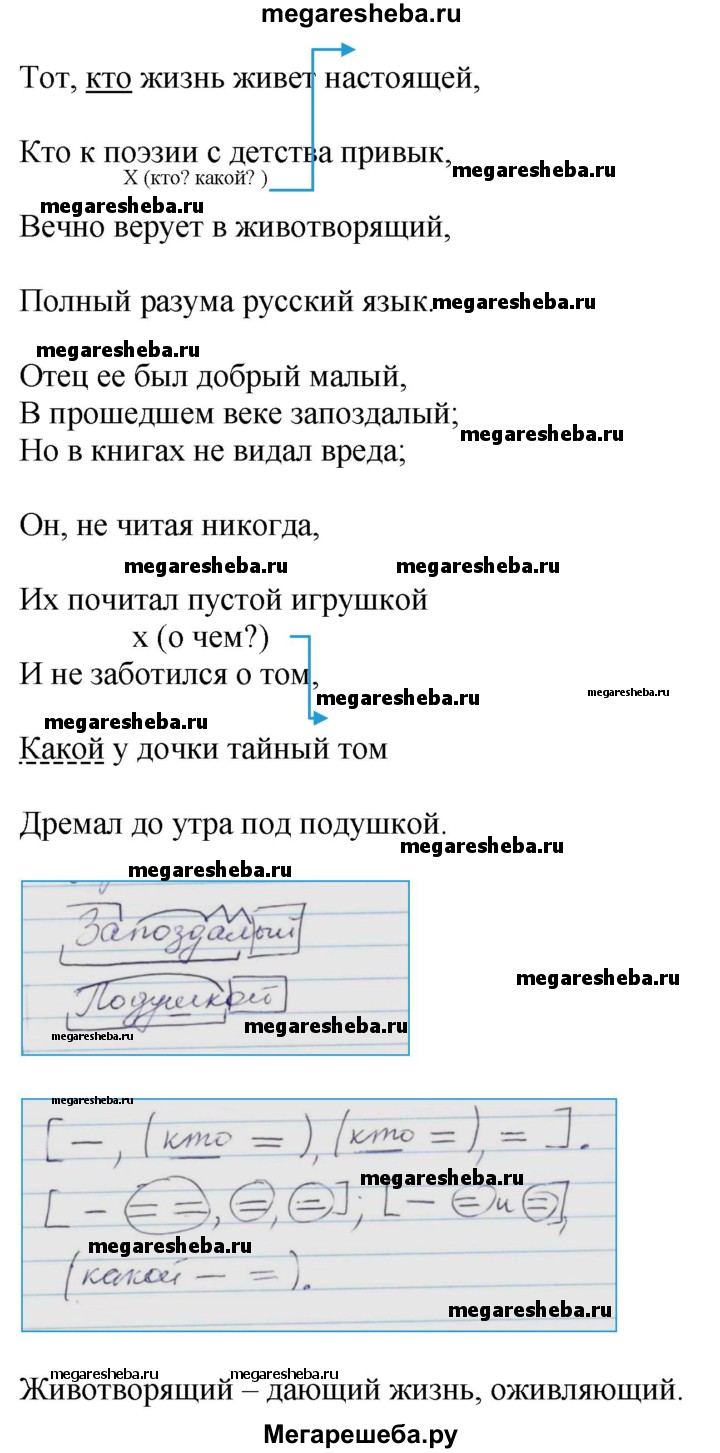 megaresheba.ru
Тот, кто жизнь живет настоящей,
Кто к поэзии с детства привык,
megaresheba.ru
Х (кто? какой? )
megaresheba.ru
Вечно верует в животворящий,
Полный разума русский язык.
megaresheba.ru
megaresheba.ru
Отец ее был добрый малый,
В прошедшем веке запоздалый;
megaresheba.ru
Но в книгах не видал вреда;
Он, не читая никогда,
megaresheba.ru megaresheba.ru
Их почитал пустой игрушкой
х (о чем?)
И не заботился о том,
megaresheba.ru
megaresheba.ru
megaresheba.ru
Какой у дочки тайный том
Дремал до утра под подушкой.
megaresheba.ru
megaresheba.ru
Запоздалый
megaresheba.ru
Подушкой
megaresheba.ru
megaresheba.ru
megaresheba.ru
[ – , (кто = ), (кто = ), = ].
megaresheba.ru
[ – = =, =, = ]; [ – = и = ],
megaresheba.ru
(какой – = ).
megaresheba.ru
megaresheba.ru megaresheba.ru
Животворящий – дающий жизнь, оживляющий.
Мегарешеба.ру